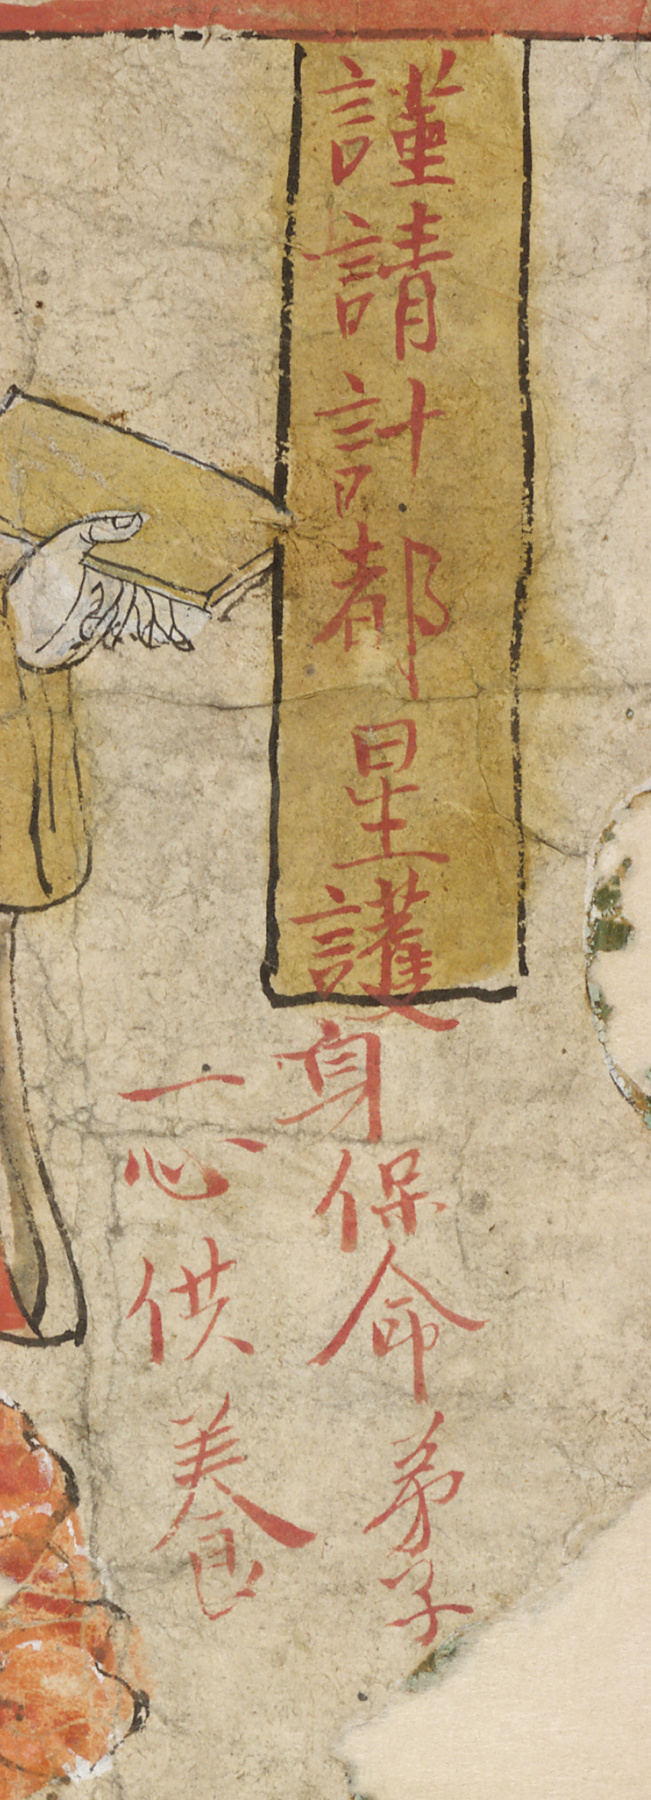 謹請計都星護身保命弟子
一心供養